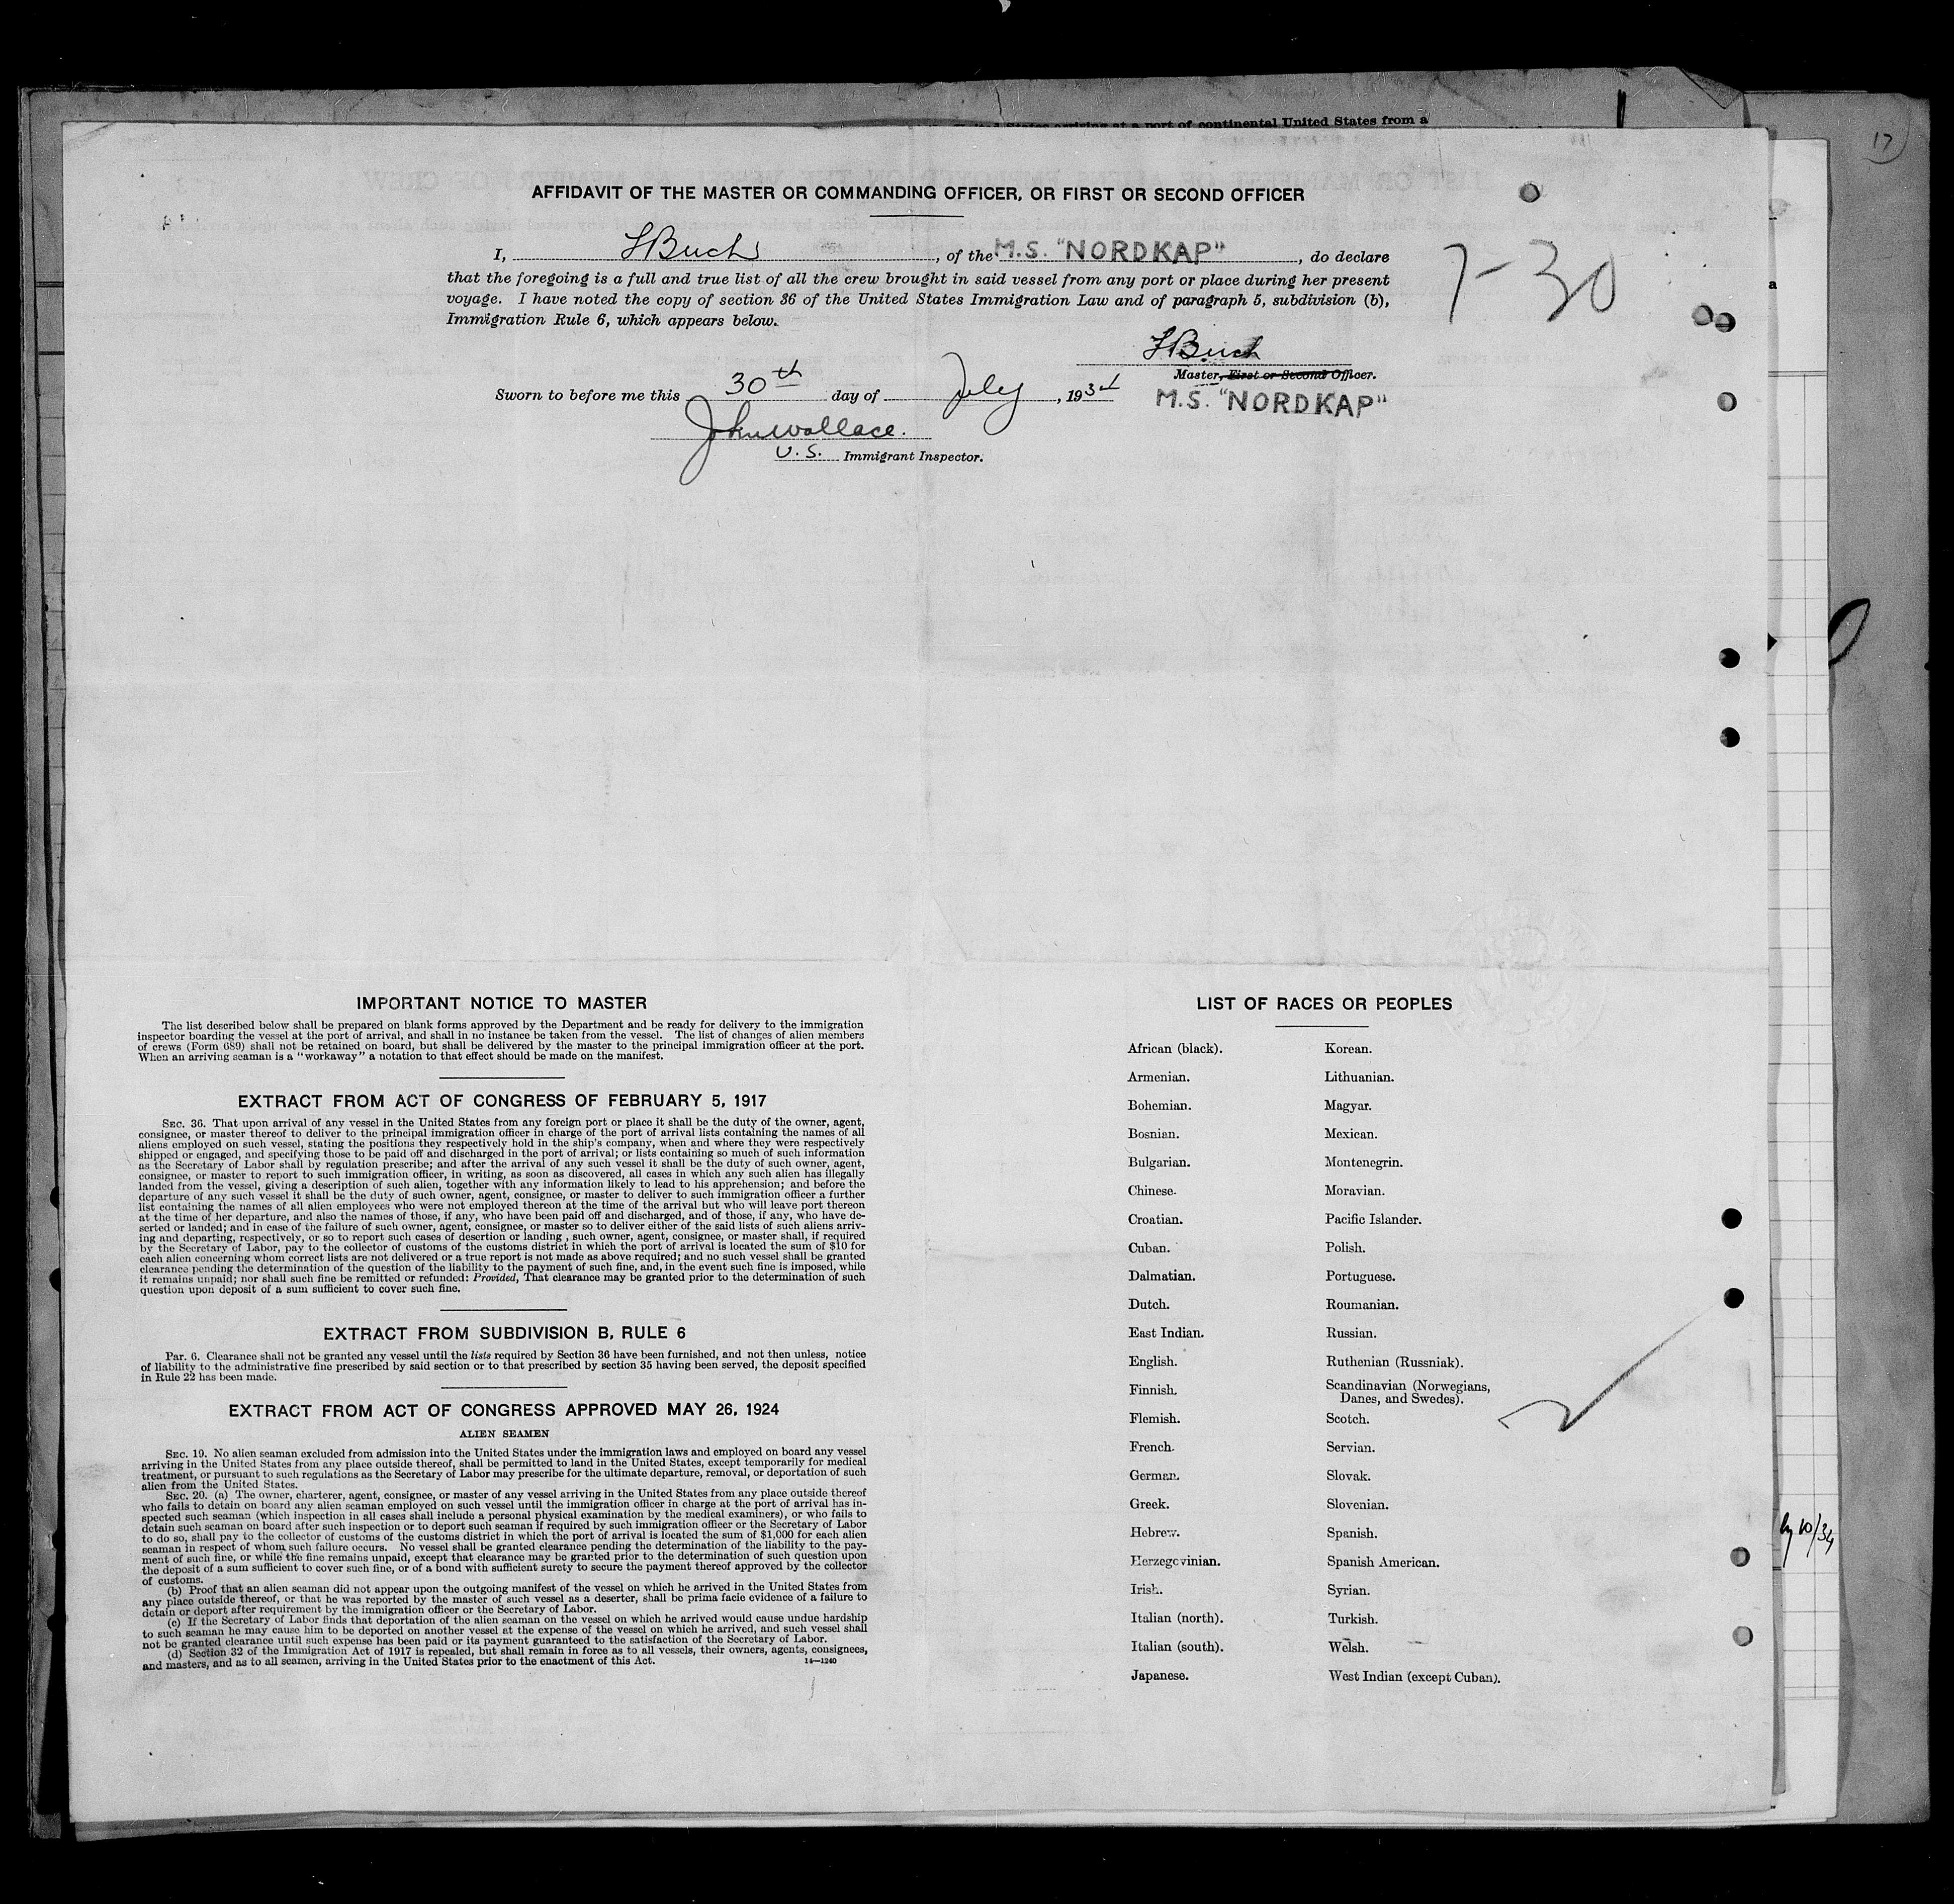 United States arriving at a port of continental United States from a
17
AFFIDAVIT OF THE MASTER OR COMMANDING OFFICER, OR FIRST OR SECOND OFFICER
I, Buch, of the M.S. "NORDKAP", do declare
7-30
that the foregoing is a full and true list of all the crew brought in said vessel from any port or place during her present
voyage. I have noted the copy of section 36 of the United States Immigration Law and of paragraph 5, subdivision (b),
Immigration Rule 6, which appears below.
Buch
Master, First or Second Officer.
Sworn to before me this 30th day of July, 1934
M.S. "NORDKAP"
John Wallace.
U.S. Immigrant Inspector.
IMPORTANT NOTICE TO MASTER
The list described below shall be prepared on blank forms approved by the Department and be ready for delivery to the immigration
inspector boarding the vessel at the port of arrival, and shall in no instance be taken from the vessel. The list of changes of alien members
of crews (Form 689) shall not be retained on board, but shall be delivered by the master to the principal immigration officer at the port.
When an arriving seaman is a "workaway" a notation to that effect should be made on the manifest.
EXTRACT FROM ACT OF CONGRESS OF FEBRUARY 5, 1917
SEC. 36. That upon arrival of any vessel in the United States from any foreign port or place it shall be the duty of the owner, agent,
consignee, or master thereof to deliver to the principal immigration officer in charge of the port of arrival lists containing the names of all
aliens employed on such vessel, stating the positions they respectively hold in the ship's company, when and where they were respectively
shipped or engaged, and specifying those to be paid off and discharged in the port of arrival; or lists containing so much of such information
as the Secretary of Labor shall by regulation prescribe; and after the arrival of any such vessel it shall be the duty of such owner, agent,
consignee, or master to report to such immigration officer, in writing, as soon as discovered, all cases in which any such alien has illegally
landed from the vessel, giving a description of such alien, together with any information likely to lead to his apprehension; and before the
departure of any such vessel it shall be the duty of such owner, agent, consignee, or master to deliver to such immigration officer a further
list containing the names of all alien employees who were not employed thereon at the time of the arrival but who will leave port thereon
at the time of her departure, and also the names of those, if any, who have been paid off and discharged, and of those, if any, who have de-
serted or landed; and in case of the failure of such owner, agent, consignee, or master so to deliver either of the said lists of such aliens arriv-
ing and departing, respectively, or so to report such cases of desertion or landing , such owner, agent, consignee, or master shall, if required
by the Secretary of Labor, pay to the collector of customs of the customs district in which the port of arrival is located the sum of $10 for
each alien concerning whom correct lists are not delivered or a true report is not made as above required; and no such vessel shall be granted
clearance pending the determination of the question of the liability to the payment of such fine, and, in the event such fine is imposed, while
it remains unpaid; nor shall such fine be remitted or refunded: Provided, That clearance may be granted prior to the determination of such
question upon deposit of a sum sufficient to cover such fine.
EXTRACT FROM SUBDIVISION B, RULE 6
PAR. 6. Clearance shall not be granted any vessel until the lists required by Section 36 have been furnished, and not then unless, notice
of liability to the administrative fine prescribed by said section or to that prescribed by section 35 having been served, the deposit specified
in Rule 22 has been made.
EXTRACT FROM ACT OF CONGRESS APPROVED MAY 26, 1924
ALIEN SEAMEN
SEC. 19. No alien seaman excluded from admission into the United States under the immigration laws and employed on board any vessel
arriving in the United States from any place outside thereof, shall be permitted to land in the United States, except temporarily for medical
treatment, or pursuant to such regulations as the Secretary of Labor may prescribe for the ultimate departure, removal, or deportation of such
alien from the United States.
SEC. 20. (a) The owner, charterer, agent, consignee, or master of any vessel arriving in the United States from any place outside thereof
who fails to detain on board any alien seaman employed on such vessel until the immigration officer in charge at the port of arrival has in-
spected such seaman (which inspection in all cases shall include a personal physical examination by the medical examiners), or who fails to
detain such seaman on board after such inspection or to deport such seaman if required by such immigration officer or the Secretary of Labor
to do so, shall pay to the collector of customs of the customs district in which the port of arrival is located the sum of $1,000 for each alien
seaman in respect of whom such failure occurs. No vessel shall be granted clearance pending the determination of the liability to the pay-
ment of such fine, or while the fine remains unpaid, except that clearance may be granted prior to the determination of such question upon
the deposit of a sum sufficient to cover such fine, or of a bond with sufficient surety to secure the payment thereof approved by the collector
of customs.
(b) Proof that an alien seaman did not appear upon the outgoing manifest of the vessel on which he arrived in the United States from
any place outside thereof, or that he was reported by the master of such vessel as a deserter, shall be prima facie evidence of a failure to
detain or deport after requirement by the immigration officer or the Secretary of Labor.
(c) If the Secretary of Labor finds that deportation of the alien seaman on the vessel on which he arrived would cause undue hardship
to such seaman he may cause him to be deported on another vessel at the expense of the vessel on which he arrived, and such vessel shall
not be granted clearance until such expense has been paid or its payment guaranteed to the satisfaction of the Secretary of Labor.
(d) Section 32 of the Immigration Act of 1917 is repealed, but shall remain in force as to all vessels, their owners, agents, consignees,
and masters, and as to all seamen, arriving in the United States prior to the enactment of this Act.
14—1240
LIST OF RACES OR PEOPLES
African (black). Korean.
Armenian. Lithuanian.
Bohemian. Magyar.
Bosnian. Mexican.
Bulgarian. Montenegrin.
Chinese. Moravian.
Croatian. Pacific Islander.
Cuban. Polish.
Dalmatian. Portuguese.
Dutch. Roumanian.
East Indian. Russian.
English. Ruthenian (Russniak).
Finnish. Scandinavian (Norwegians,
Danes, and Swedes).
Flemish. Scotch.
French. Servian.
German. Slovak.
Greek. Slovenian.
Hebrew. Spanish.
Herzegovinian. Spanish American.
Irish. Syrian.
Italian (north). Turkish.
Italian (south). Welsh.
Japanese. West Indian (except Cuban).
10/34